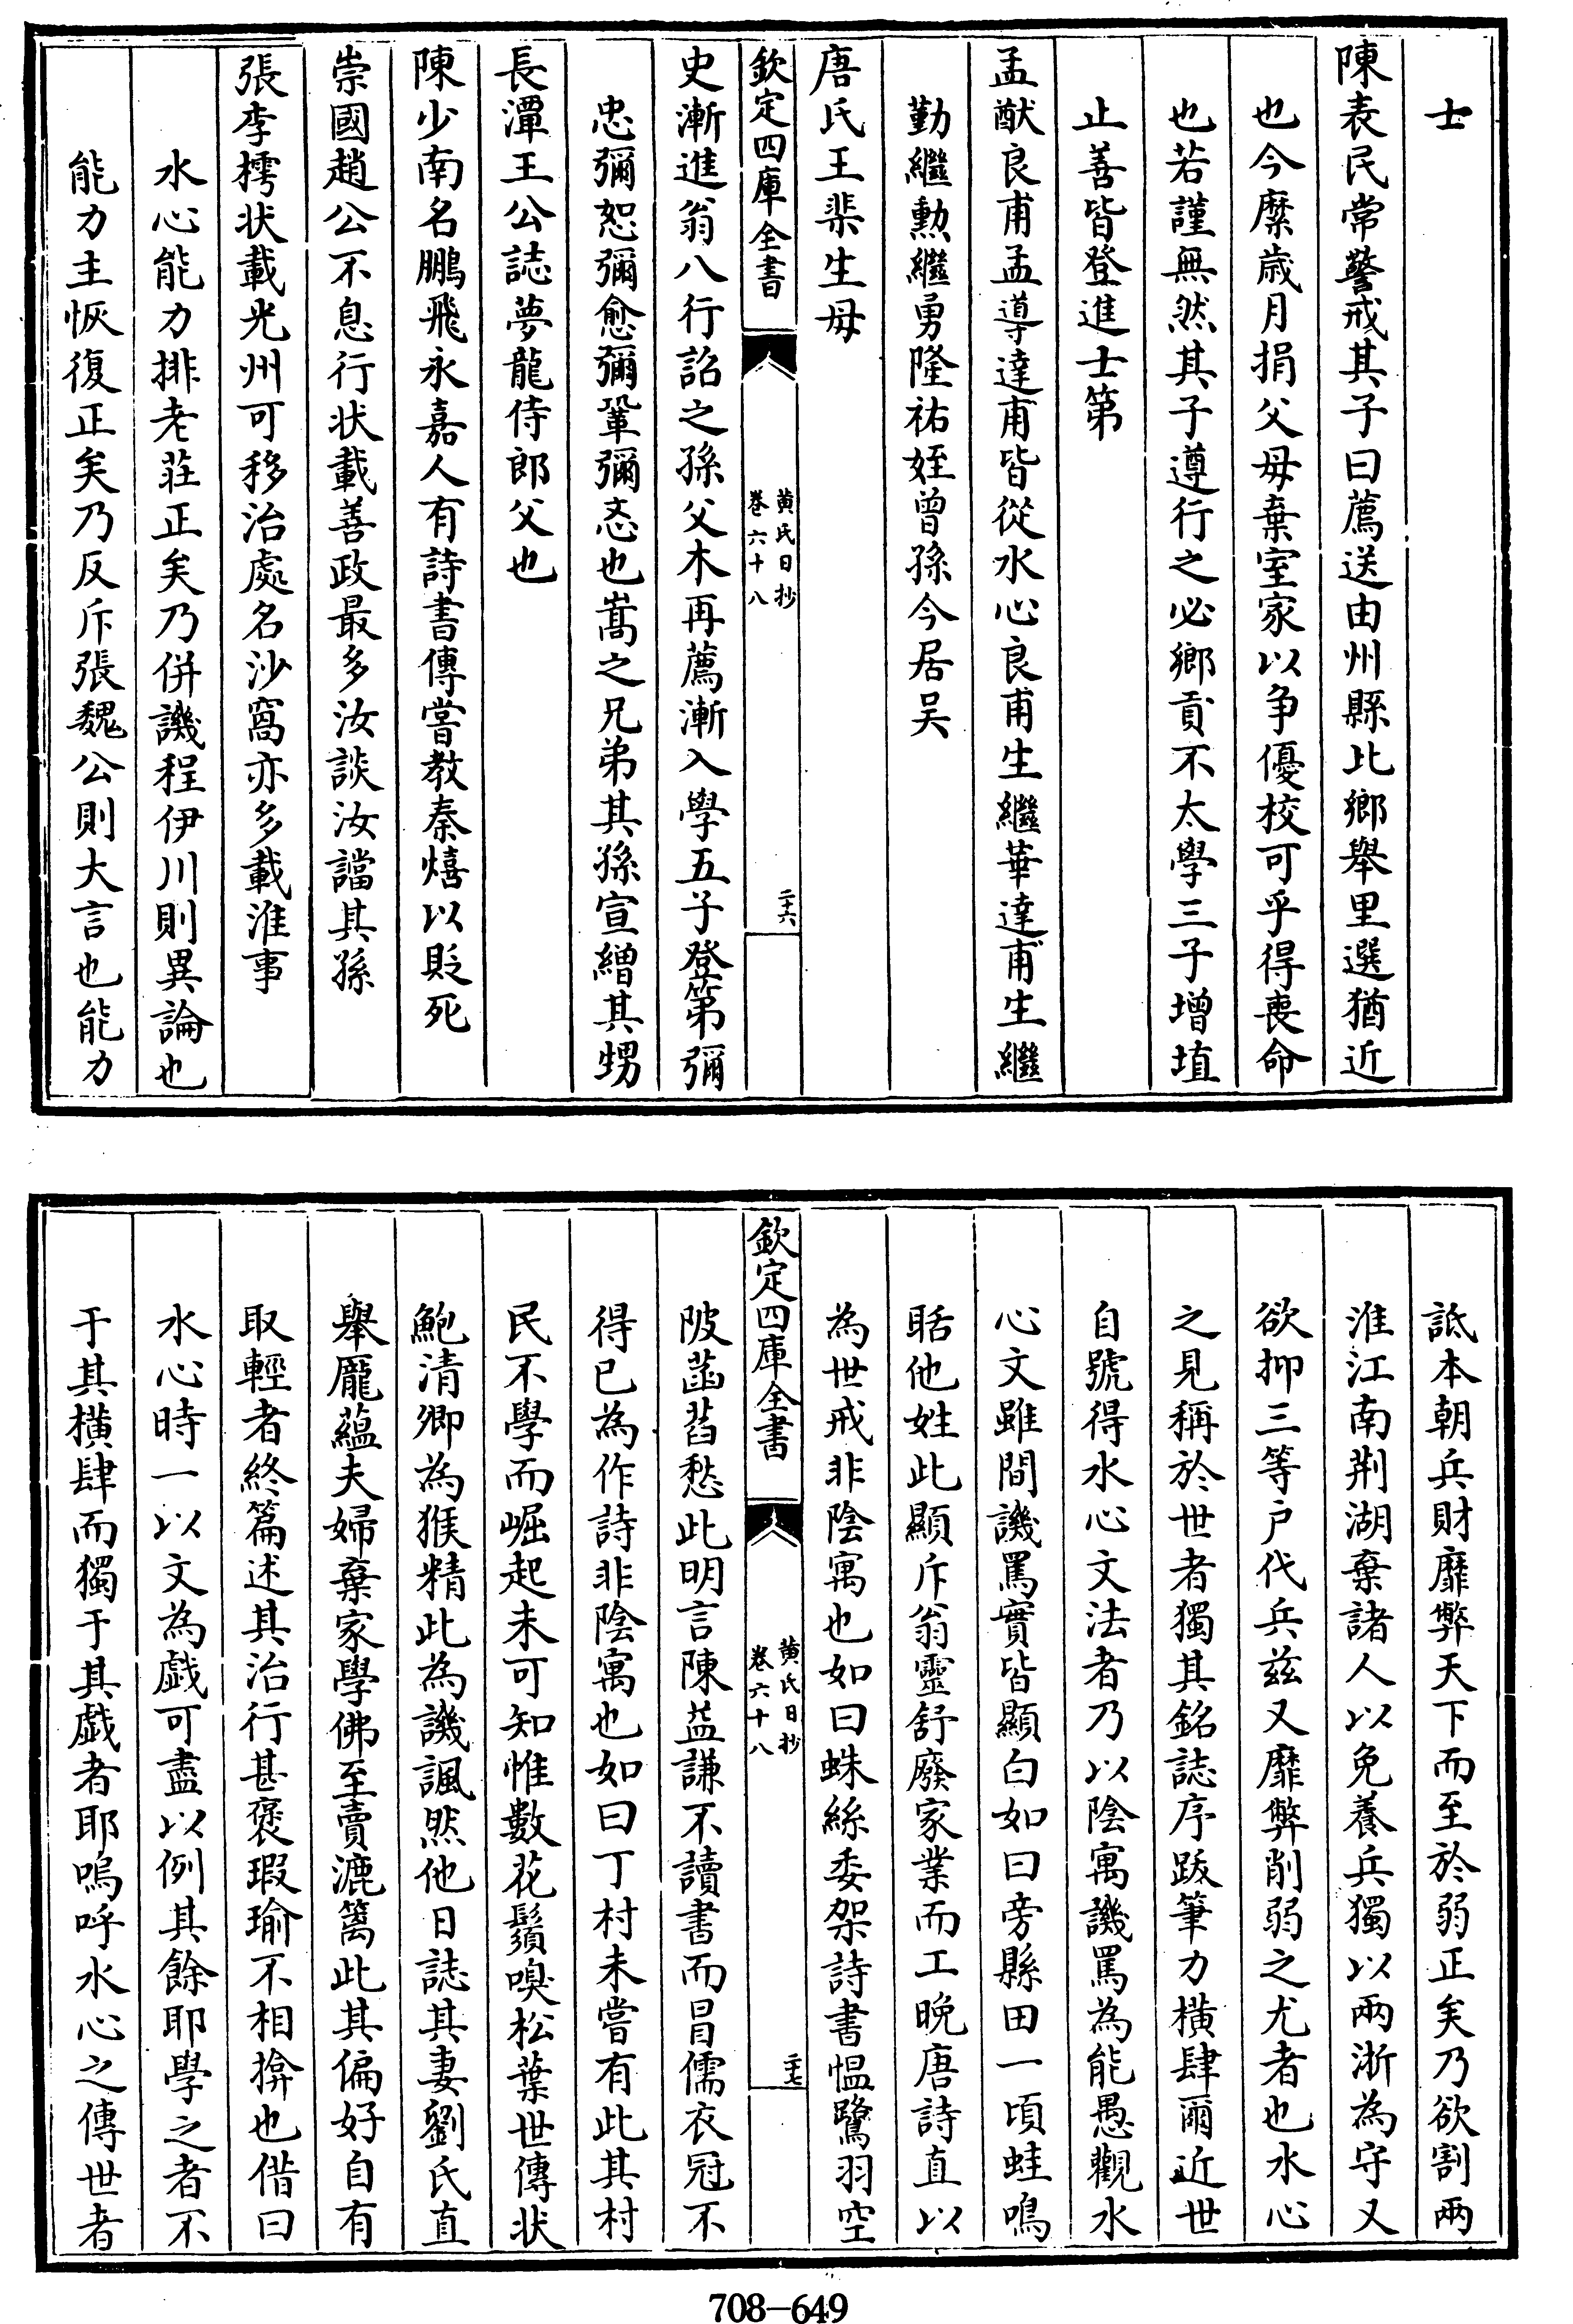 士
陳表民常警戒其子曰薦送由州縣比鄉舉里選猶近
也今縻歲月捐父母棄室家以争優校可乎得喪命
也若謹無然其子遵行之必鄉貢不太學三子增埴
止善皆登進士第
孟猷良甫孟導達甫皆從水心良甫生繼華達甫生繼
勤繼勲繼勇隆祐姪曾孫今居吳
唐氏王棐生母
欽定四庫全書
黃氏日抄
卷六十八
二十六
史漸進翁八行詔之孫父木再薦漸入學五子登第彌
忠彌恕彌愈彌鞏彌忞也嵩之兄弟其孫宣繒其甥
長潭王公誌夢龍侍郎父也
陳少南名鵬飛永嘉人有詩書傳嘗教秦熺以貶死
崇國趙公不息行状載善政最多汝談汝讜其孫
張李樗状載光州可移治處名沙窩亦多載淮事
水心能力排老莊正矣乃併譏程伊川則異論也
能力主恢復正矣乃反斥張魏公則大言也能力
詆本朝兵財靡弊天下而至於弱正矣乃欲割兩
淮江南荆湖棄諸人以免養兵獨以兩浙為守又
欲抑三等户代兵兹又靡弊削弱之尤者也水心
之見稱於世者獨其銘誌序跋筆力横肆爾近世
自號得水心文法者乃以陰寓譏罵為能愚觀水
心文雖間譏罵實皆顯白如曰旁縣田一頃蛙鳴
聒他姓此顯斥翁靈舒廢家業而工晚唐詩直以
為世戒非陰寓也如曰蛛絲委架詩書愠鷺羽空
欽定四庫全書
黃氏日抄
卷六十八
二十七
陂菡萏愁此明言陳益謙不讀書而冒儒衣冠不
得已為作詩非陰寓也如曰丁村未嘗有此其村
民不學而崛起未可知惟數花鬚嗅松葉世傳状
鮑清卿為猴精此為譏諷然他日誌其妻劉氏直
舉龎蘊夫婦棄家學佛至賣漉篱此其偏好自有
取輕者終篇述其治行甚褒瑕瑜不相揜也借曰
水心時一以文為戯可盡以例其餘耶學之者不
于其横肆而獨于其戯者耶嗚呼水心之傳世者
708-649